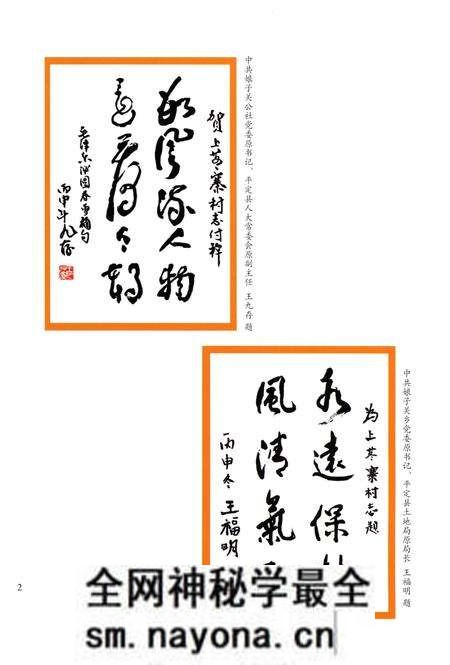 中共娘子关公社党委原书记、平定县人大常委会原副主任 王九存 题
贺上董寨村志付梓
数风流人物
还看今朝
毛泽东沁园春雪摘句
丙申年九存
中共娘子关乡党委原书记、平定县土地局原局长 王福明 题
为上董寨村志题
永遠保
風清氣
丙申冬 王福明
2
全网神秘学最全
sm.nayona.cn